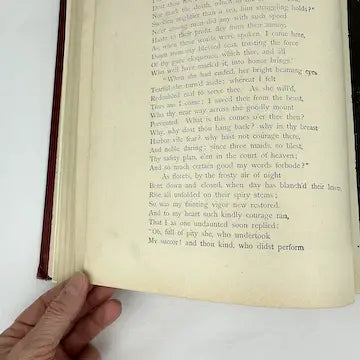 Dost thou not
Nor mark the death, which in
Swoln mightier than a sea, him struggling holds?"
Ne'er among men did any with such speed
Haste to their profit, flee from their annoy,
As, when these words were spoken, I came here,
Down from my blessed seat, trusting the force
Of thy pure eloquence, which thee, and all
Who well have mark'd it, into honor brings."
"When she had ended, her bright beaming eyes
Tearful she turn'd aside; whereat I felt
Redoubled zeal to serve thee. As she will'd,
Thus am I come: I saved thee from the beast,
Who thy near way across the goodly mount
Prevented. What is this comes o'er thee then?
Why, why dost thou hang back? why in thy breast
Harbor vile fear? why hast not courage there,
And noble daring; since three maids, so blest,
Thy safety plan, e'en in the court of heaven;
And so much certain good my words forbode?"
As florets, by the frosty air of night
Bent down and closed, when day has blanch'd their leaves,
Rise all unfolded on their spiry stems;
So was my fainting vigor new restored,
And to my heart such kindly courage ran,
That I as one undaunted soon replied:
"Oh, full of pity she, who undertook
My succor! and thou kind, who didst perform